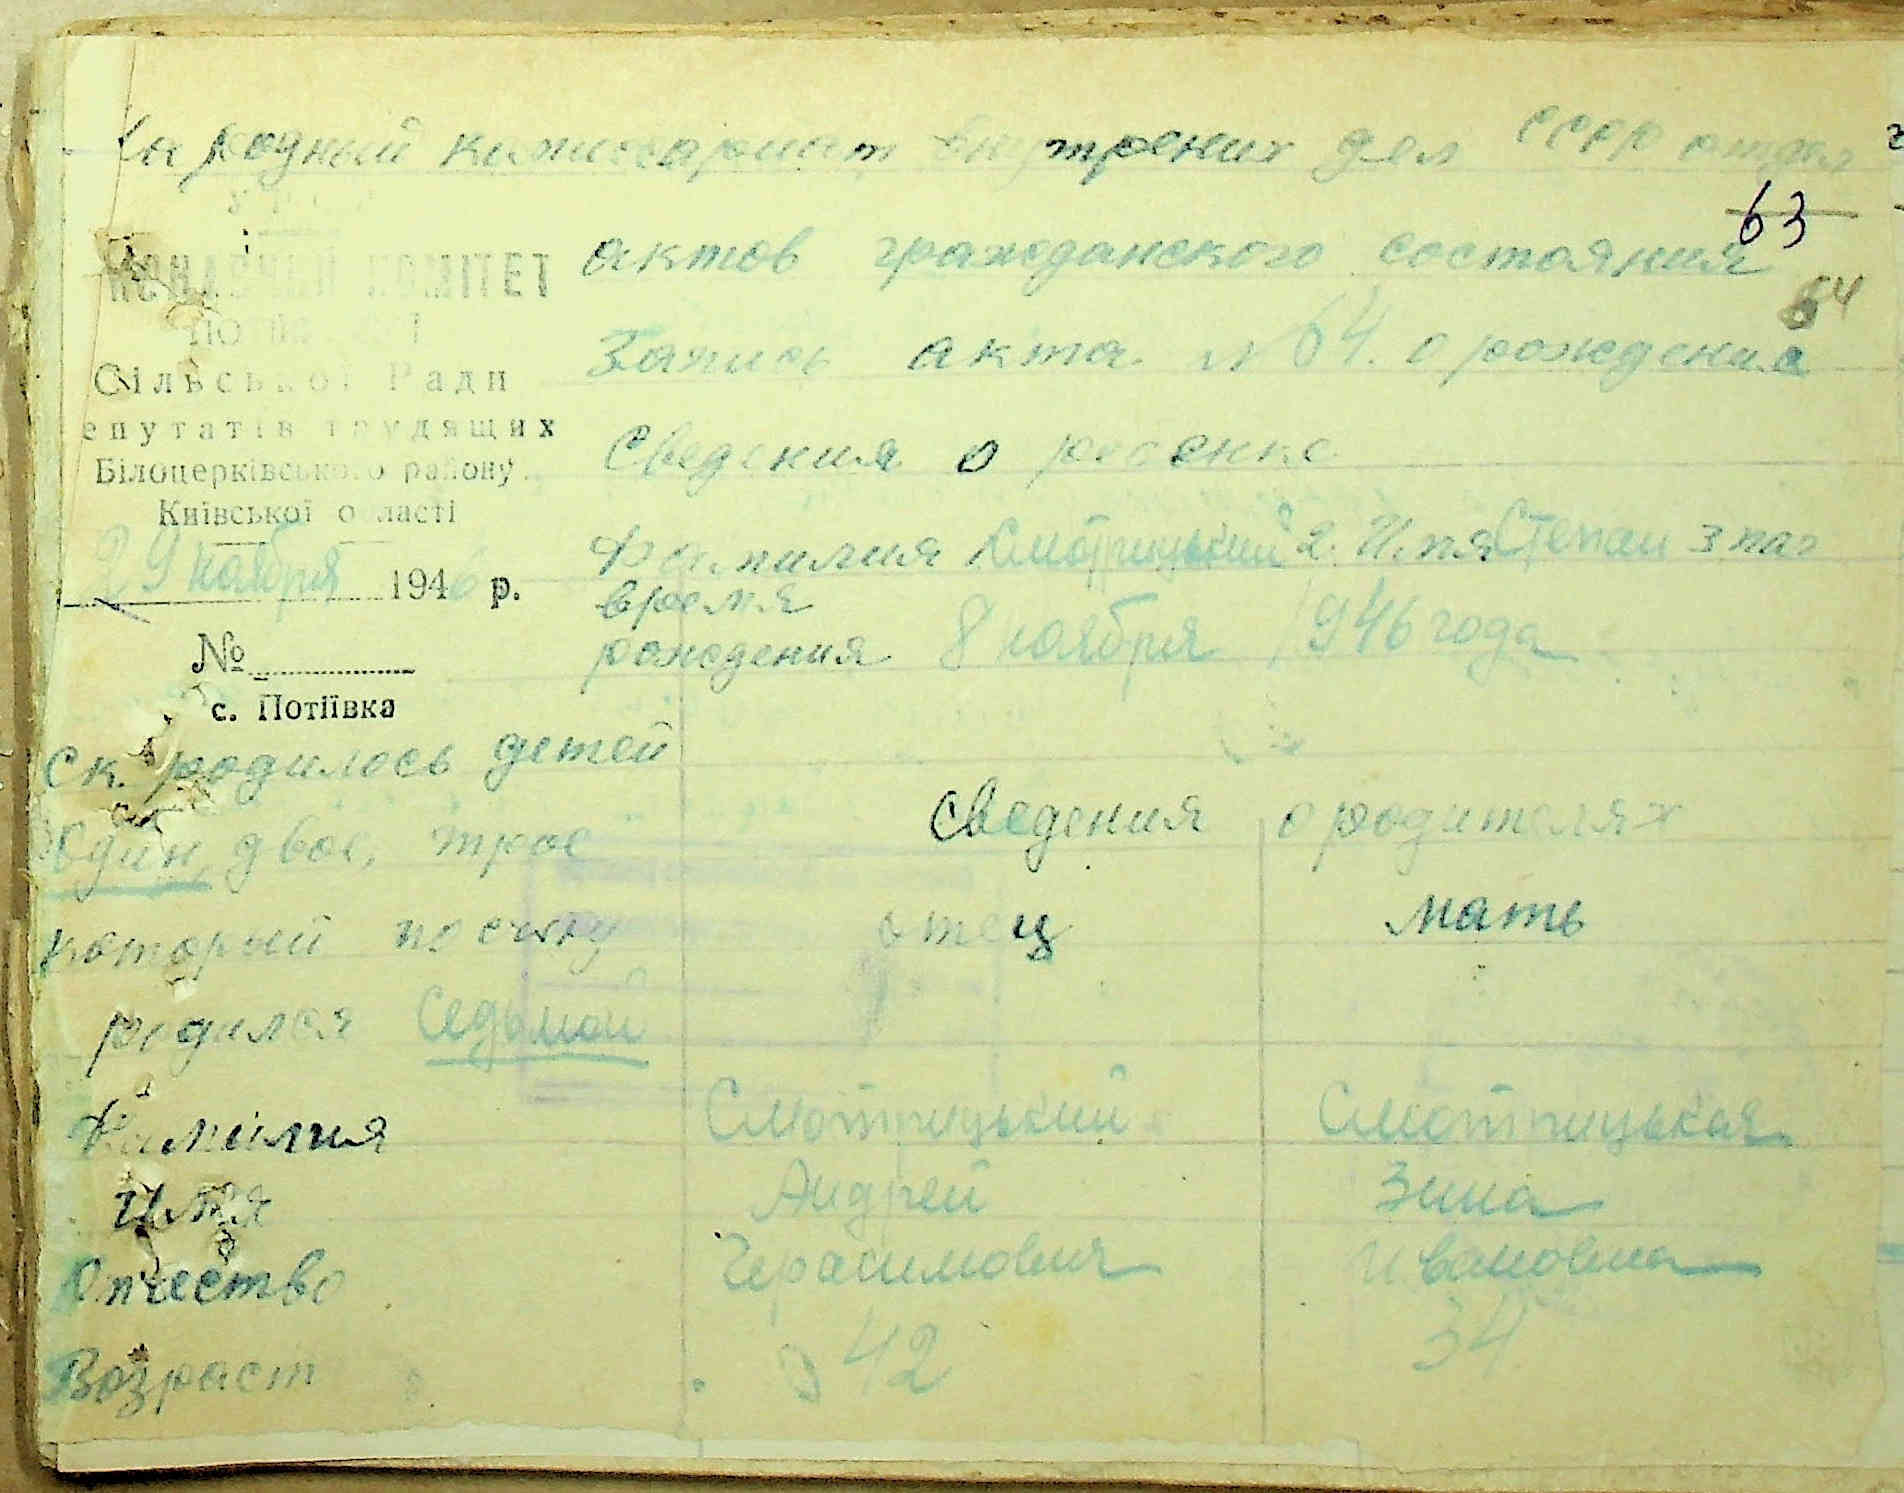 Народный комиссариат внутрених дел СССР отдел
63
актов гражданского состояния
64
Запись акта N 64. о рождении
КОМІТЕТ
Сільської Ради
епутатів трудящих
Білоцерківського району
Київської області
29 ноября 1946 р.
№
с. Потіївка
Сведения о ребенке
Фамилия Смотрицький 2. Имя Степан 3 пол
время
рождения 8 ноября 1946 года
ск. родилось детей
один, двое, трое
который по счету
родился Седьмой
Сведения о родителях
отец мать
Фамилия Смотрицький Смотрицькая
Имя Андрей Зина
Отчество Герасимович Ивановна
Возраст 42 34